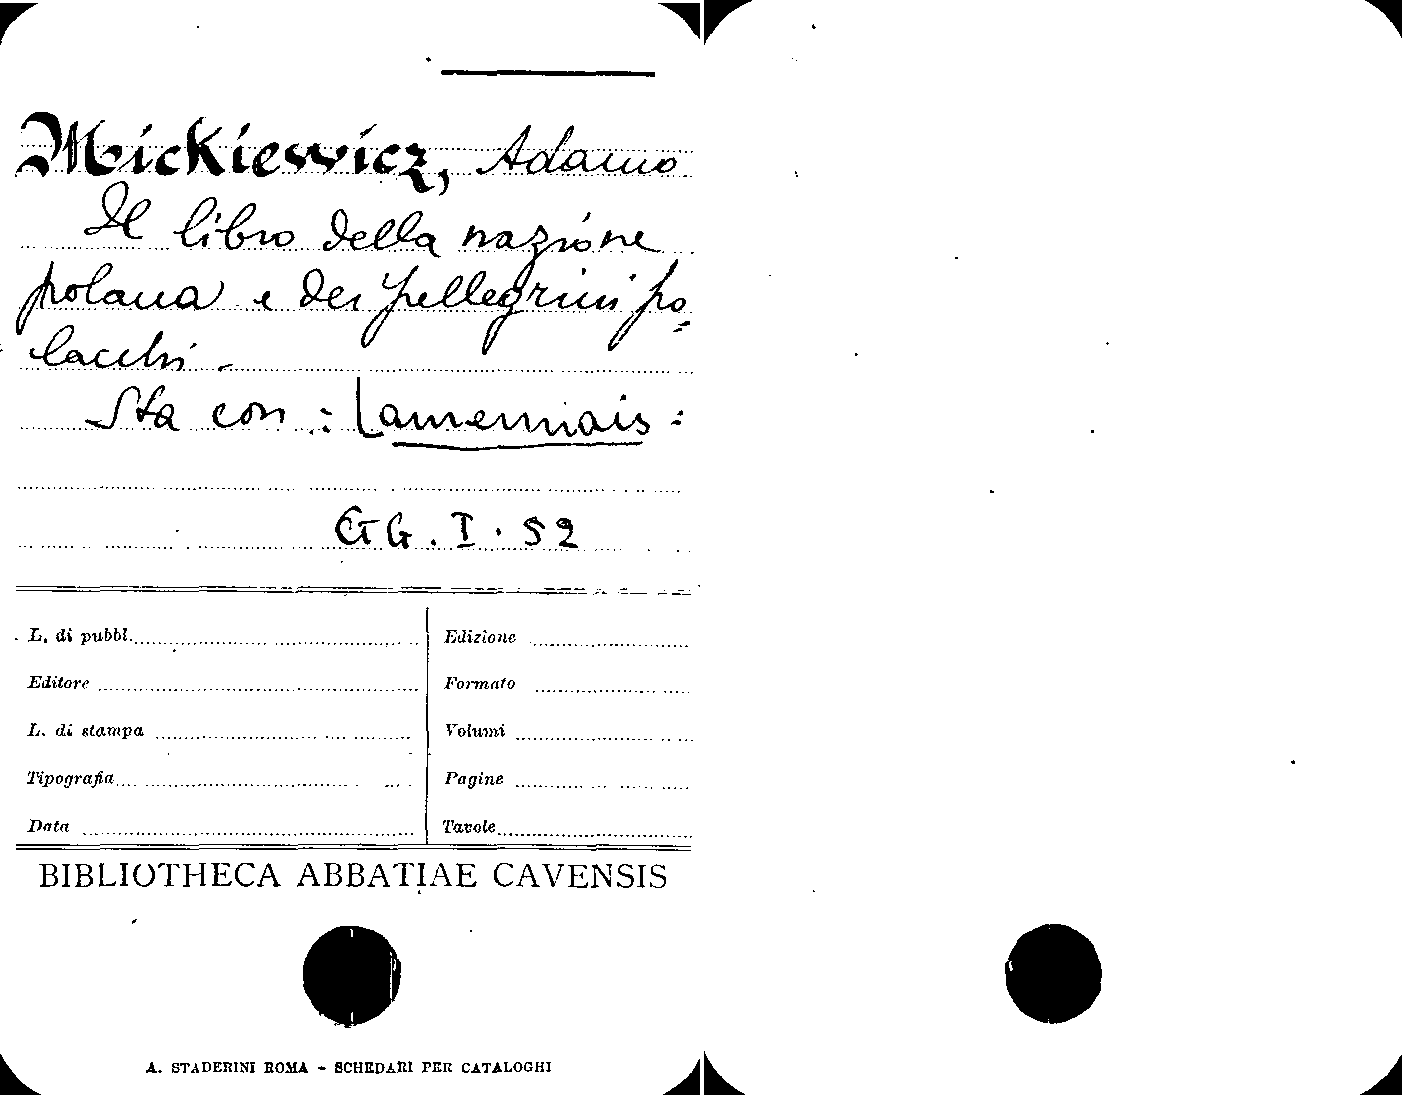 Mickiewicz, Adamo
Il libro della nazione
polacca e dei pellegrini po=
lacchi.
Sta con : Lamennais :
GG. I. 52
L. di pubbl.
Edizione
Editore
Formato
L. di stampa
Volumi
Tipografia
Pagine
Data
Tavole
BIBLIOTHECA ABBATIAE CAVENSIS
A. STADERINI ROMA - SCHEDARI PER CATALOGHI